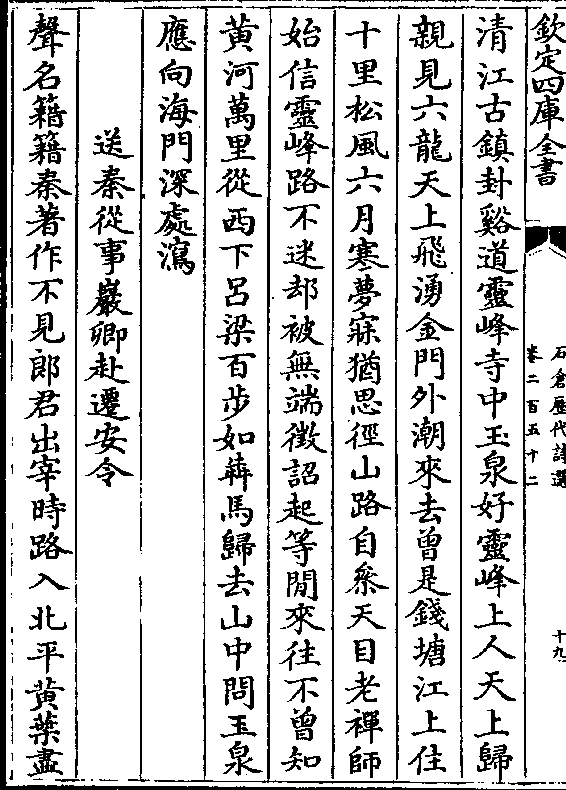 欽定四庫全書
石倉歷代詩選
卷二百五十二
十九
清江古鎮封谿道靈峰寺中玉泉好靈峰上人天上歸
親見六龍天上飛湧金門外潮來去曾是錢塘江上住
十里松風六月寒夢寐猶思徑山路自叅天目老禪師
始信靈峰路不迷却被無端徵詔起等閒來往不曾知
黄河萬里從西下吕梁百步如犇馬歸去山中問玉泉
應向海門深處瀉
送秦從事巖卿赴遷安令
聲名籍籍秦著作不見郎君出宰時路入北平黄葉盡